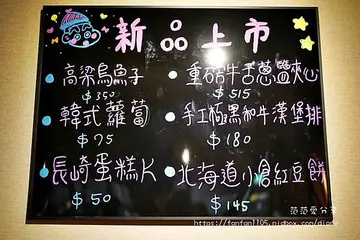 新品上市
高梁烏魚子
$350
韓式蘿蔔
$75
長崎蛋糕片
$50
重磅牛舌蔥鹽夾心
$515
手工極黑和牛漢堡排
$180
北海道小倉紅豆餅
$145
范范愛分享
https://fanfan1105.nidbox.com/diary